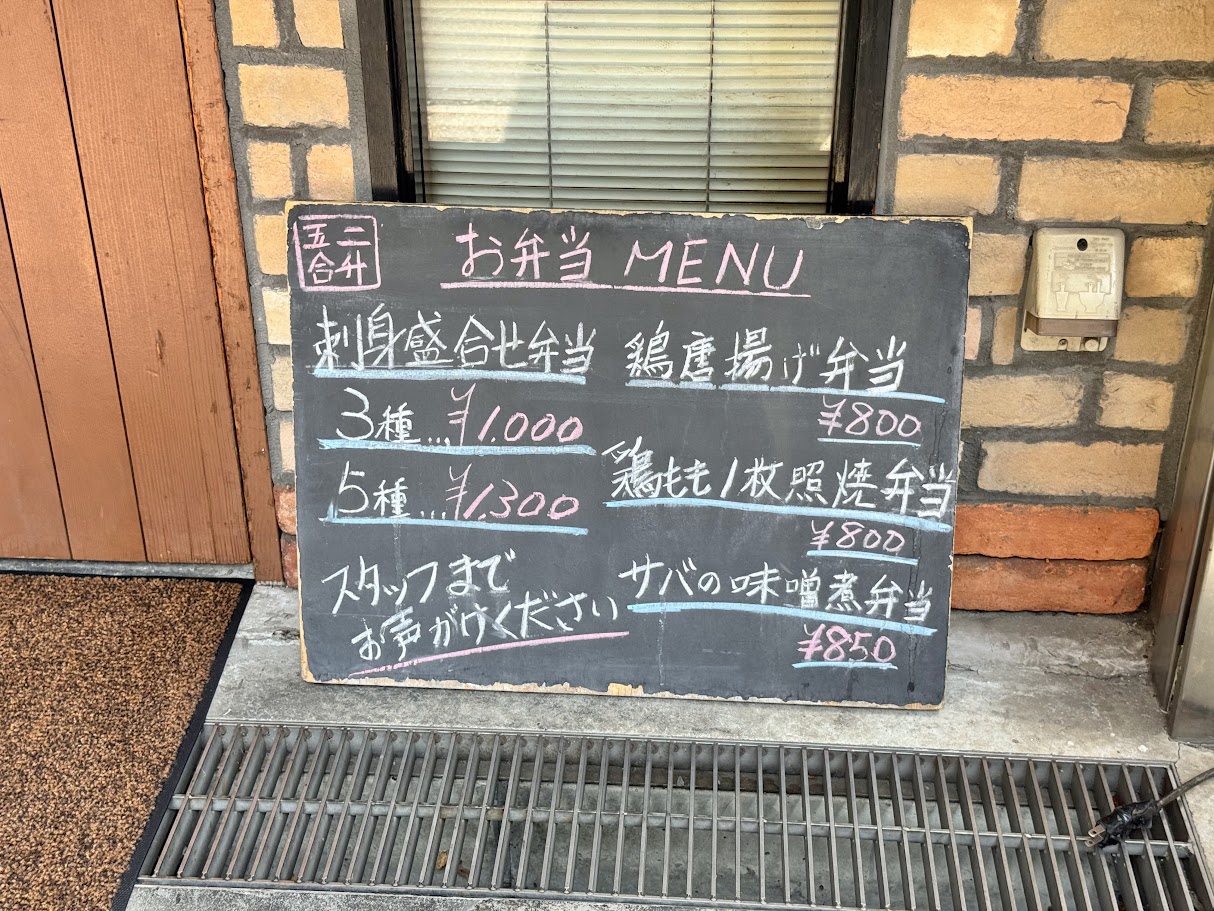 二升
五合
お弁当 MENU
刺身盛合せ弁当
3種....¥1.000
5種....¥1.300
スタッフまで
お声がけください
鶏唐揚げ弁当
¥800
鶏もも1枚照焼弁当
¥800
サバの味噌煮弁当
¥850